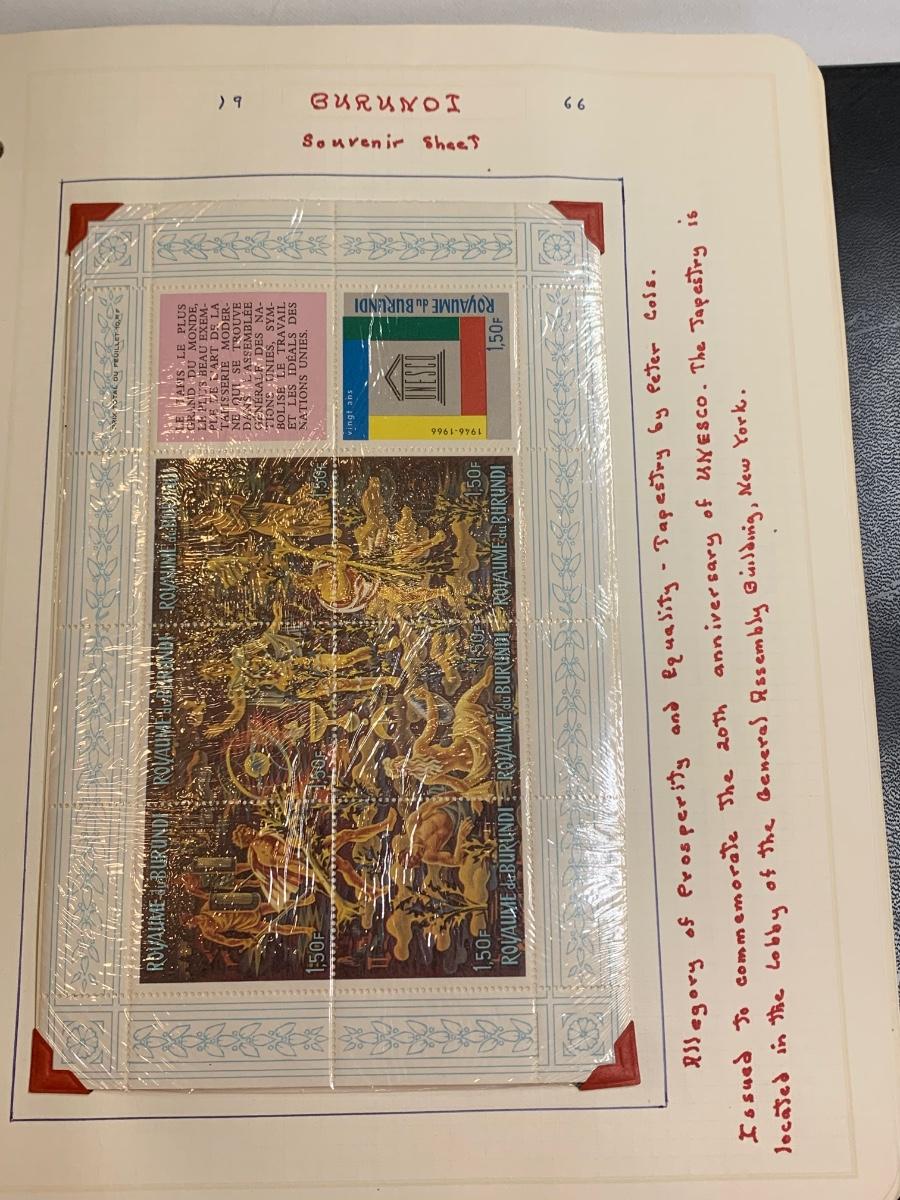 19 BURUNDI 66
Souvenir Sheet
PRIX TOTAL DU FEUILLET: 10,50 F
LE TAPIS LE PLUS
GRAND DU MONDE,
LA PLUS BEAU EXEM-
PLE DE L'ART DE LA
TAPISSERIE MODER-
NE QUI SE TROUVE
DANS L'ASSEMBLEE
GENERALE DES NA-
TIONS UNIES, SYM-
BOLISE LE TRAVAIL
ET LES IDÉALS DES
NATIONS UNIES.
ROYAUME du BURUNDI
1,50F
UNESCO
vingt ans
1946-1966
ROYAUME du BURUNDI
1,50F
ROYAUME du BURUNDI
1,50F
ROYAUME du BURUNDI
1,50F
ROYAUME du BURUNDI
1,50F
ROYAUME du BURUNDI
1,50F
ROYAUME du BURUNDI
1,50F
Allegory of Prosperity and Equality - Tapestry by Peter Cols.
Issued To commemorate The 20th anniversary of UNESCO. The Tapestry is
located in the Lobby of the General Assembly Building, New York.